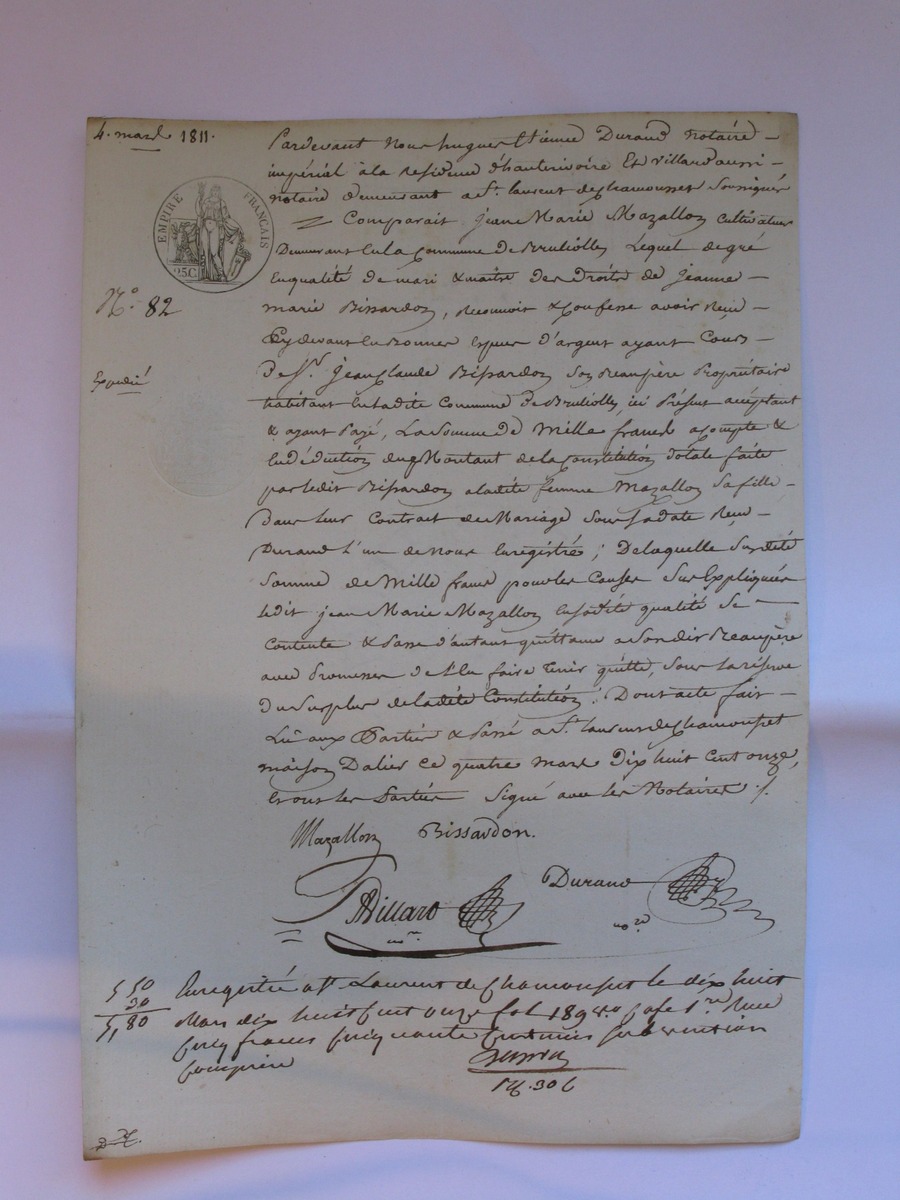 4. mars 1811.
EMPIRE FRANÇAIS
25C
N.o 82
Expedié
Pardevant Nous hugues Etienne Durand Notaire
impérial à la residence d'hauterivoire Et Villard aussi
notaire demeurant a St. laurent de chamousset Soussignés
Comparait jean Marie Mazallon cultivateur
Demeurant En la Commune de Brulliolles Lequel de gré
En qualité de mari & maitre des Droits de jeanne
marie Bissardon, reconnoit & confesse avoir Reçu
Cy devant En Bonnes Espèces d'argent ayant Cours
De Sr. Jean Claude Bissardon Son Beaupère Propriétaire
habitant En ladite Commune de Brulliolles, ici Présent acceptant
& ayant Payé, La Somme de Mille francs acompte &
En déduction du Montant de la Constitution dotale faite
par ledit Bissardon a ladite femme Mazallon Sa fille
Dans leur Contrat de Mariage Sous Sa date Reçu
Durand L'un de Nous Enregistré; De laquelle Susdite
Somme de Mille francs pour les Causes Sus Expliquées
ledit jean Marie Mazallon En Sadite qualité Se
Contente & Passe d'autant quittance a Son dit Beaupère
avec Promesses de l'En faire tenir quitte, Sous la réserve
du Surplus de ladite Constitution. Dont acte fait
Lû aux Parties & Passé a St. laurent de Chamousset
maison Dalier ce quatre mars Dix huit Cent onze,
Et ont les Parties Signé avec les Notaires ./.
Mazallon Bissardon.
Durand
Villard
nore
nre
5 50
30
5, 80
Enregistré a St Laurent de Chamousset le dix huit
Mars dix huit cent onze fol 189 Vo Case 1re Reçu
cinq francs cinquante centimes subvention
comprise